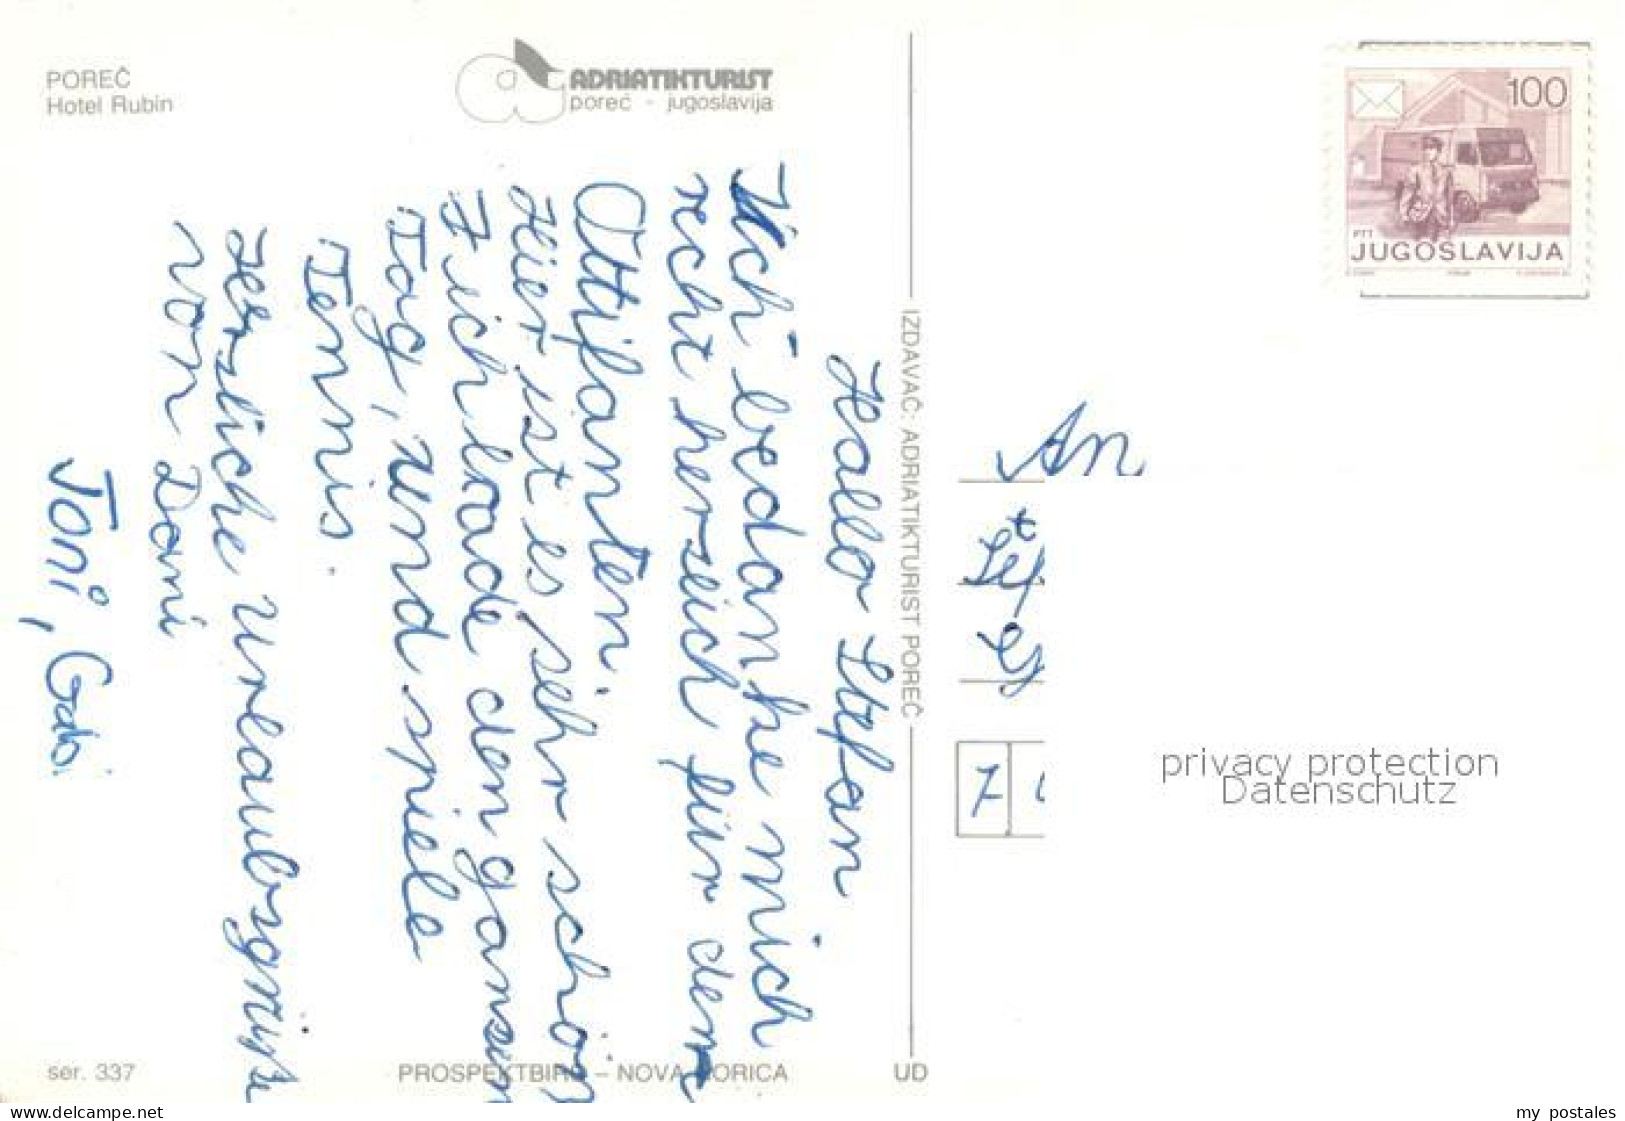 POREČ
Hotel Rubin
ADRIATIKTURIST
poreč - jugoslavija
Hallo Stefan
Ich bedanke mich
recht herzlich für den
Ottifanten.
Hier ist es sehr schön
Ich bade den ganzen
Tag, und spiele
Tennis.
Herzliche Urlaubsgrüße
von Dani
Toni, Gabi
IZDAVAČ: ADRIATIKTURIST POREČ
ser. 337
PROSPEKTBIRO – NOVA GORICA
UD
100
PTT
JUGOSLAVIJA
An
7
privacy protection
Datenschutz
www.delcampe.net
my postales